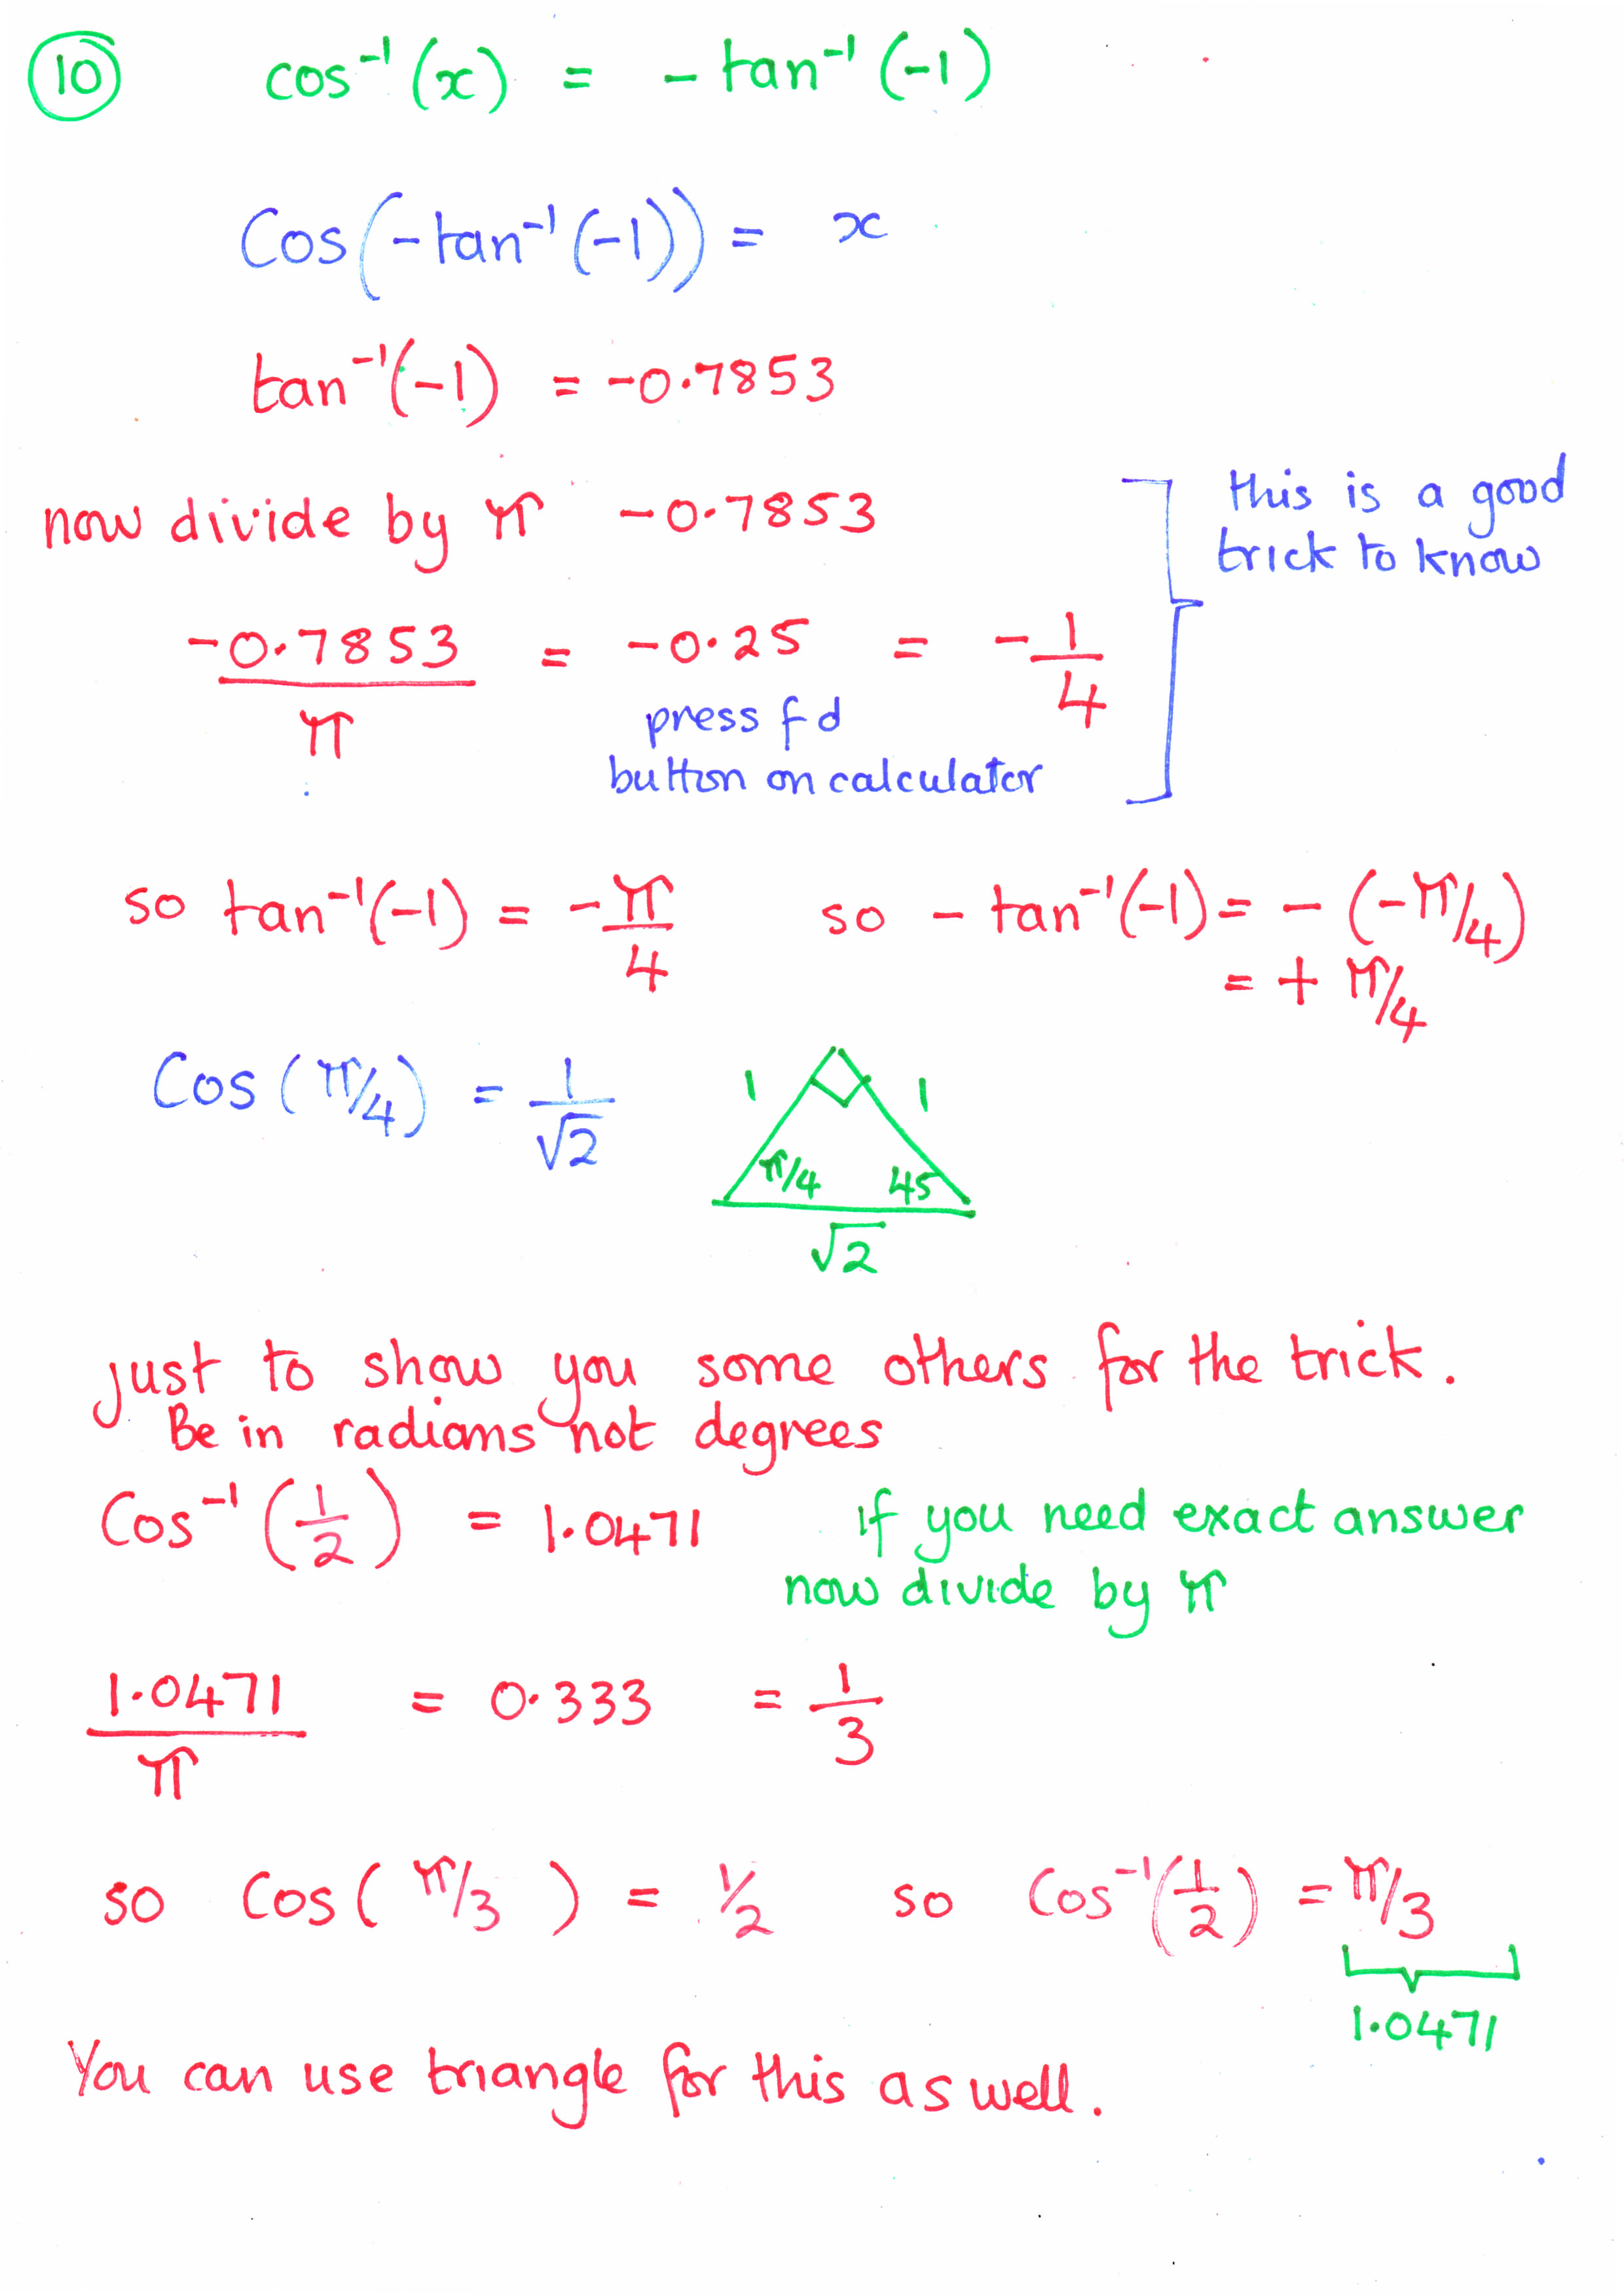 10 cos⁻¹(x) = - tan⁻¹(-1)
Cos(-tan⁻¹(-1)) = x
tan⁻¹(-1) = -0.7853
now divide by π -0.7853
this is a good
trick to know
-0.7853/π = -0.25 = -1/4
press fd
button on calculator
so tan⁻¹(-1) = -π/4 so - tan⁻¹(-1) = - (-π/4)
= + π/4
Cos(π/4) = 1/√2
1 1
π/4 45
√2
just to show you some others for the trick.
Be in radians not degrees
Cos⁻¹(1/2) = 1.0471 if you need exact answer
now divide by π
1.0471/π = 0.333 = 1/3
so Cos(π/3) = 1/2 so Cos⁻¹(1/2) = π/3
1.0471
You can use triangle for this as well.